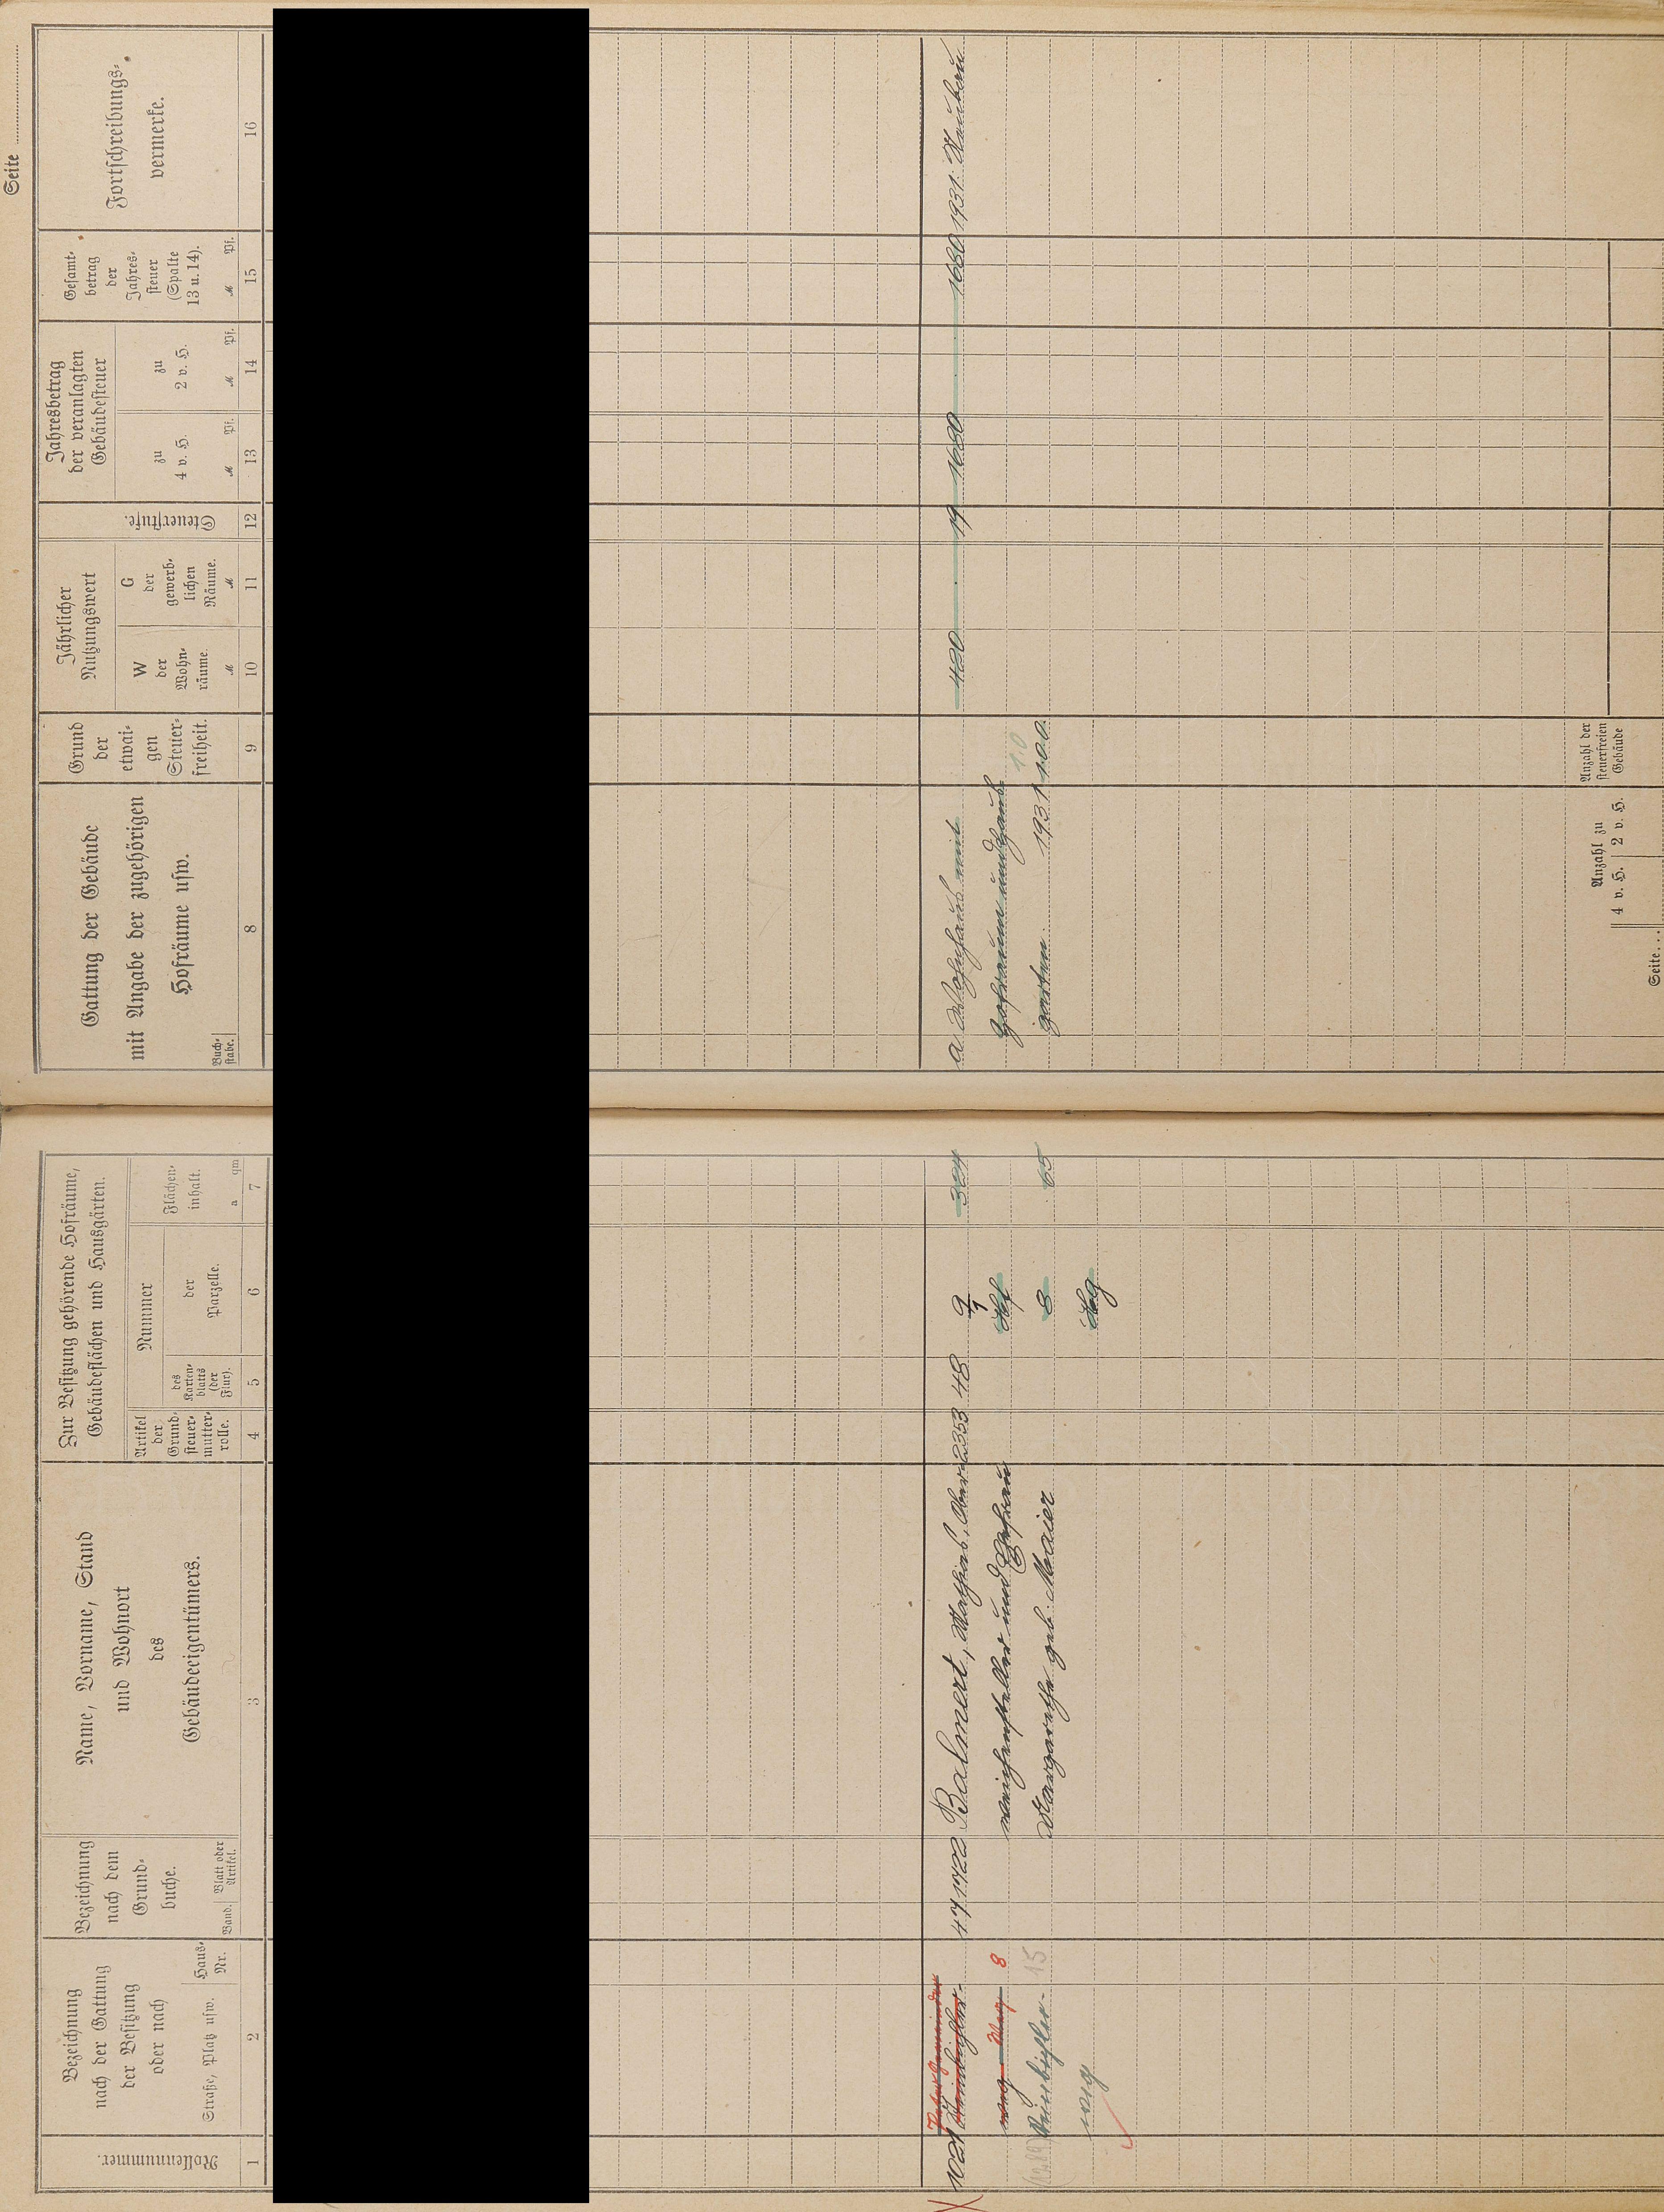 Seite
Bezeichnung
nach der Gattung
der Besitzung
oder nach
Straße, Platz usw.
Haus-
Nr.
Rollennummer.
Bezeichnung
nach dem
Grund-
buche.
Band.
Blatt oder
Artikel.
Name, Vorname, Stand
und Wohnort
des
Gebäudeeigentümers.
Zur Besitzung gehörende Hofräume,
Gebäudeflächen und Hausgärten.
Artikel
der
Grund-
steuer-
mutter-
rolle.
Nummer
des
Karten-
blatts
(der
Flur).
der
Parzelle.
Flächen-
inhalt.
a qm
1 2 3 4 5 6 7
Gattung der Gebäude
mit Angabe der zugehörigen
Hofräume usw.
Buch-
stabe.
Grund
der
etwai-
gen
Steuer-
freiheit.
Jährlicher
Nutzungswert
W
der
Wohn-
räume.
M
G
der
gewerb-
lichen
Räume.
M
Steuerstufe.
Jahresbetrag
der veranlagten
Gebäudesteuer
zu
4 v. H.
M Pf.
zu
2 v. H.
M Pf.
Gesamt-
betrag
der
Jahres-
steuer
(Spalte
13 u. 14).
M Pf.
Fortschreibungs-
vermerke.
8 9 10 11 12 13 14 15 16
1021 47 1722 Balmert, Mathias, Ober- 2353 48 9/1 324
weichensteller und Ehefrau Hf
Margarethe geb. Maier 8 65
Hg
weg 8
15
weg
a Wohnhaus mit 420 19 1680 1680 1931 Neubau
Hofraum und Haus- 10
garten 1931 100
Seite...
Anzahl zu
4 v. H. 2 v. H.
Anzahl der
steuerfreien
Gebäude